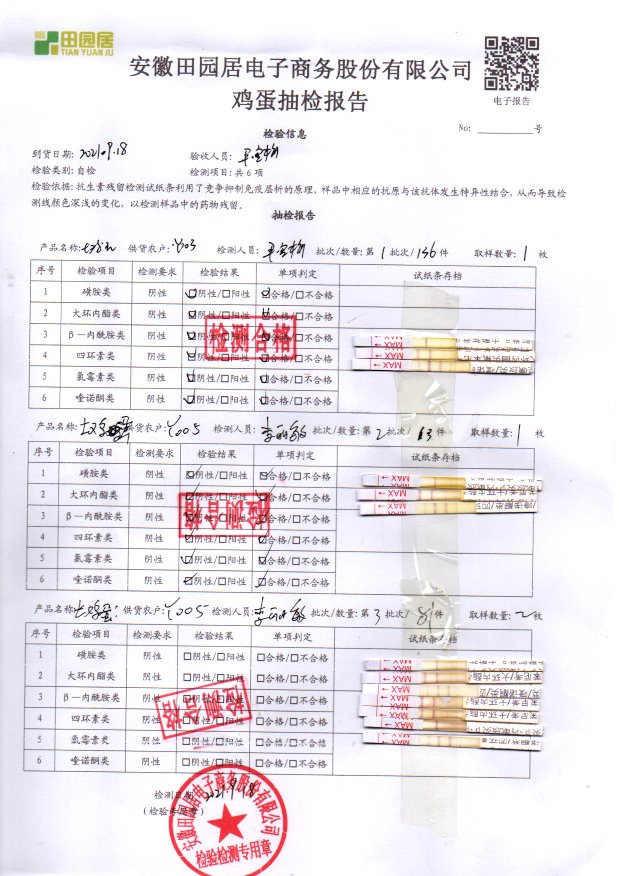 田园居
TIAN YUAN JU
安徽田园居电子商务股份有限公司
鸡蛋抽检报告
电子报告
检验信息
No: 号
到货日期: 2021.9.18 验收人员:
检验类别: 自检 检测项目: 共 6 项
检验依据: 抗生素残留检测试纸条利用了竞争抑制免疫层析的原理, 样品中相应的抗原与该抗体发生特异性结合, 从而导致检
测线颜色深浅的变化, 以检测样品中的药物残留。
抽检报告
产品名称: 供货农户: Y003 检测人员: 批次/数量: 第 1 批次/ 136 件 取样数量: 1 枚
序号 检验项目 检测要求 检验结果 单项判定 试纸条存档
1 磺胺类 阴性 ☑阴性/☐阳性 ☑合格/☐不合格
2 大环内酯类 阴性 ☑阴性/☐阳性 ☑合格/☐不合格
3 β—内酰胺类 阴性 ☑阴性/☐阳性 ☑合格/☐不合格
4 四环素类 阴性 ☑阴性/☐阳性 ☑合格/☐不合格
5 氯霉素类 阴性 ☑阴性/☐阳性 ☑合格/☐不合格
6 喹诺酮类 阴性 ☑阴性/☐阳性 ☑合格/☐不合格
检测合格
MAX
MAX
MAX
产品名称: 供货农户: Y005 检测人员: 批次/数量: 第 2 批次/ 13 件 取样数量: 1 枚
序号 检验项目 检测要求 检验结果 单项判定 试纸条存档
1 磺胺类 阴性 ☑阴性/☐阳性 ☑合格/☐不合格
2 大环内酯类 阴性 ☑阴性/☐阳性 ☑合格/☐不合格
3 β—内酰胺类 阴性 ☑阴性/☐阳性 ☑合格/☐不合格
4 四环素类 阴性 ☑阴性/☐阳性 ☑合格/☐不合格
5 氯霉素类 阴性 ☑阴性/☐阳性 ☑合格/☐不合格
6 喹诺酮类 阴性 ☑阴性/☐阳性 ☑合格/☐不合格
检测合格
MAX
MAX
MAX
产品名称: 供货农户: Y005 检测人员: 批次/数量: 第 3 批次/ 81 件 取样数量: 2 枚
序号 检验项目 检测要求 检验结果 单项判定 试纸条存档
1 磺胺类 阴性 ☐阴性/☐阳性 ☐合格/☐不合格
2 大环内酯类 阴性 ☐阴性/☐阳性 ☐合格/☐不合格
3 β—内酰胺类 阴性 ☐阴性/☐阳性 ☐合格/☐不合格
4 四环素类 阴性 ☐阴性/☐阳性 ☐合格/☐不合格
5 氯霉素类 阴性 ☐阴性/☐阳性 ☐合格/☐不合格
6 喹诺酮类 阴性 ☐阴性/☐阳性 ☐合格/☐不合格
检测合格
MAX
MAX
MAX
MAX
MAX
MAX
检测日期: 2021.9.18
(检验委员章)
安徽田园居电子商务股份有限公司
检验检测专用章